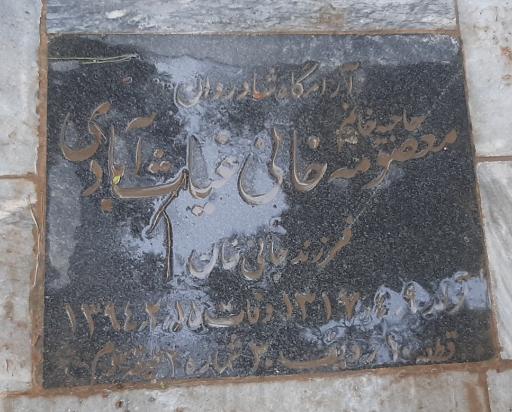 آرامگاه شادروان
حاجیه خانم
معصومه خانی غیاث آبادی
فرزند خانی خان
تولد ۱۳۱۶ وفات ۱۳۹۴.۲.۱۵
قطعه ردیف ۲۰ شماره